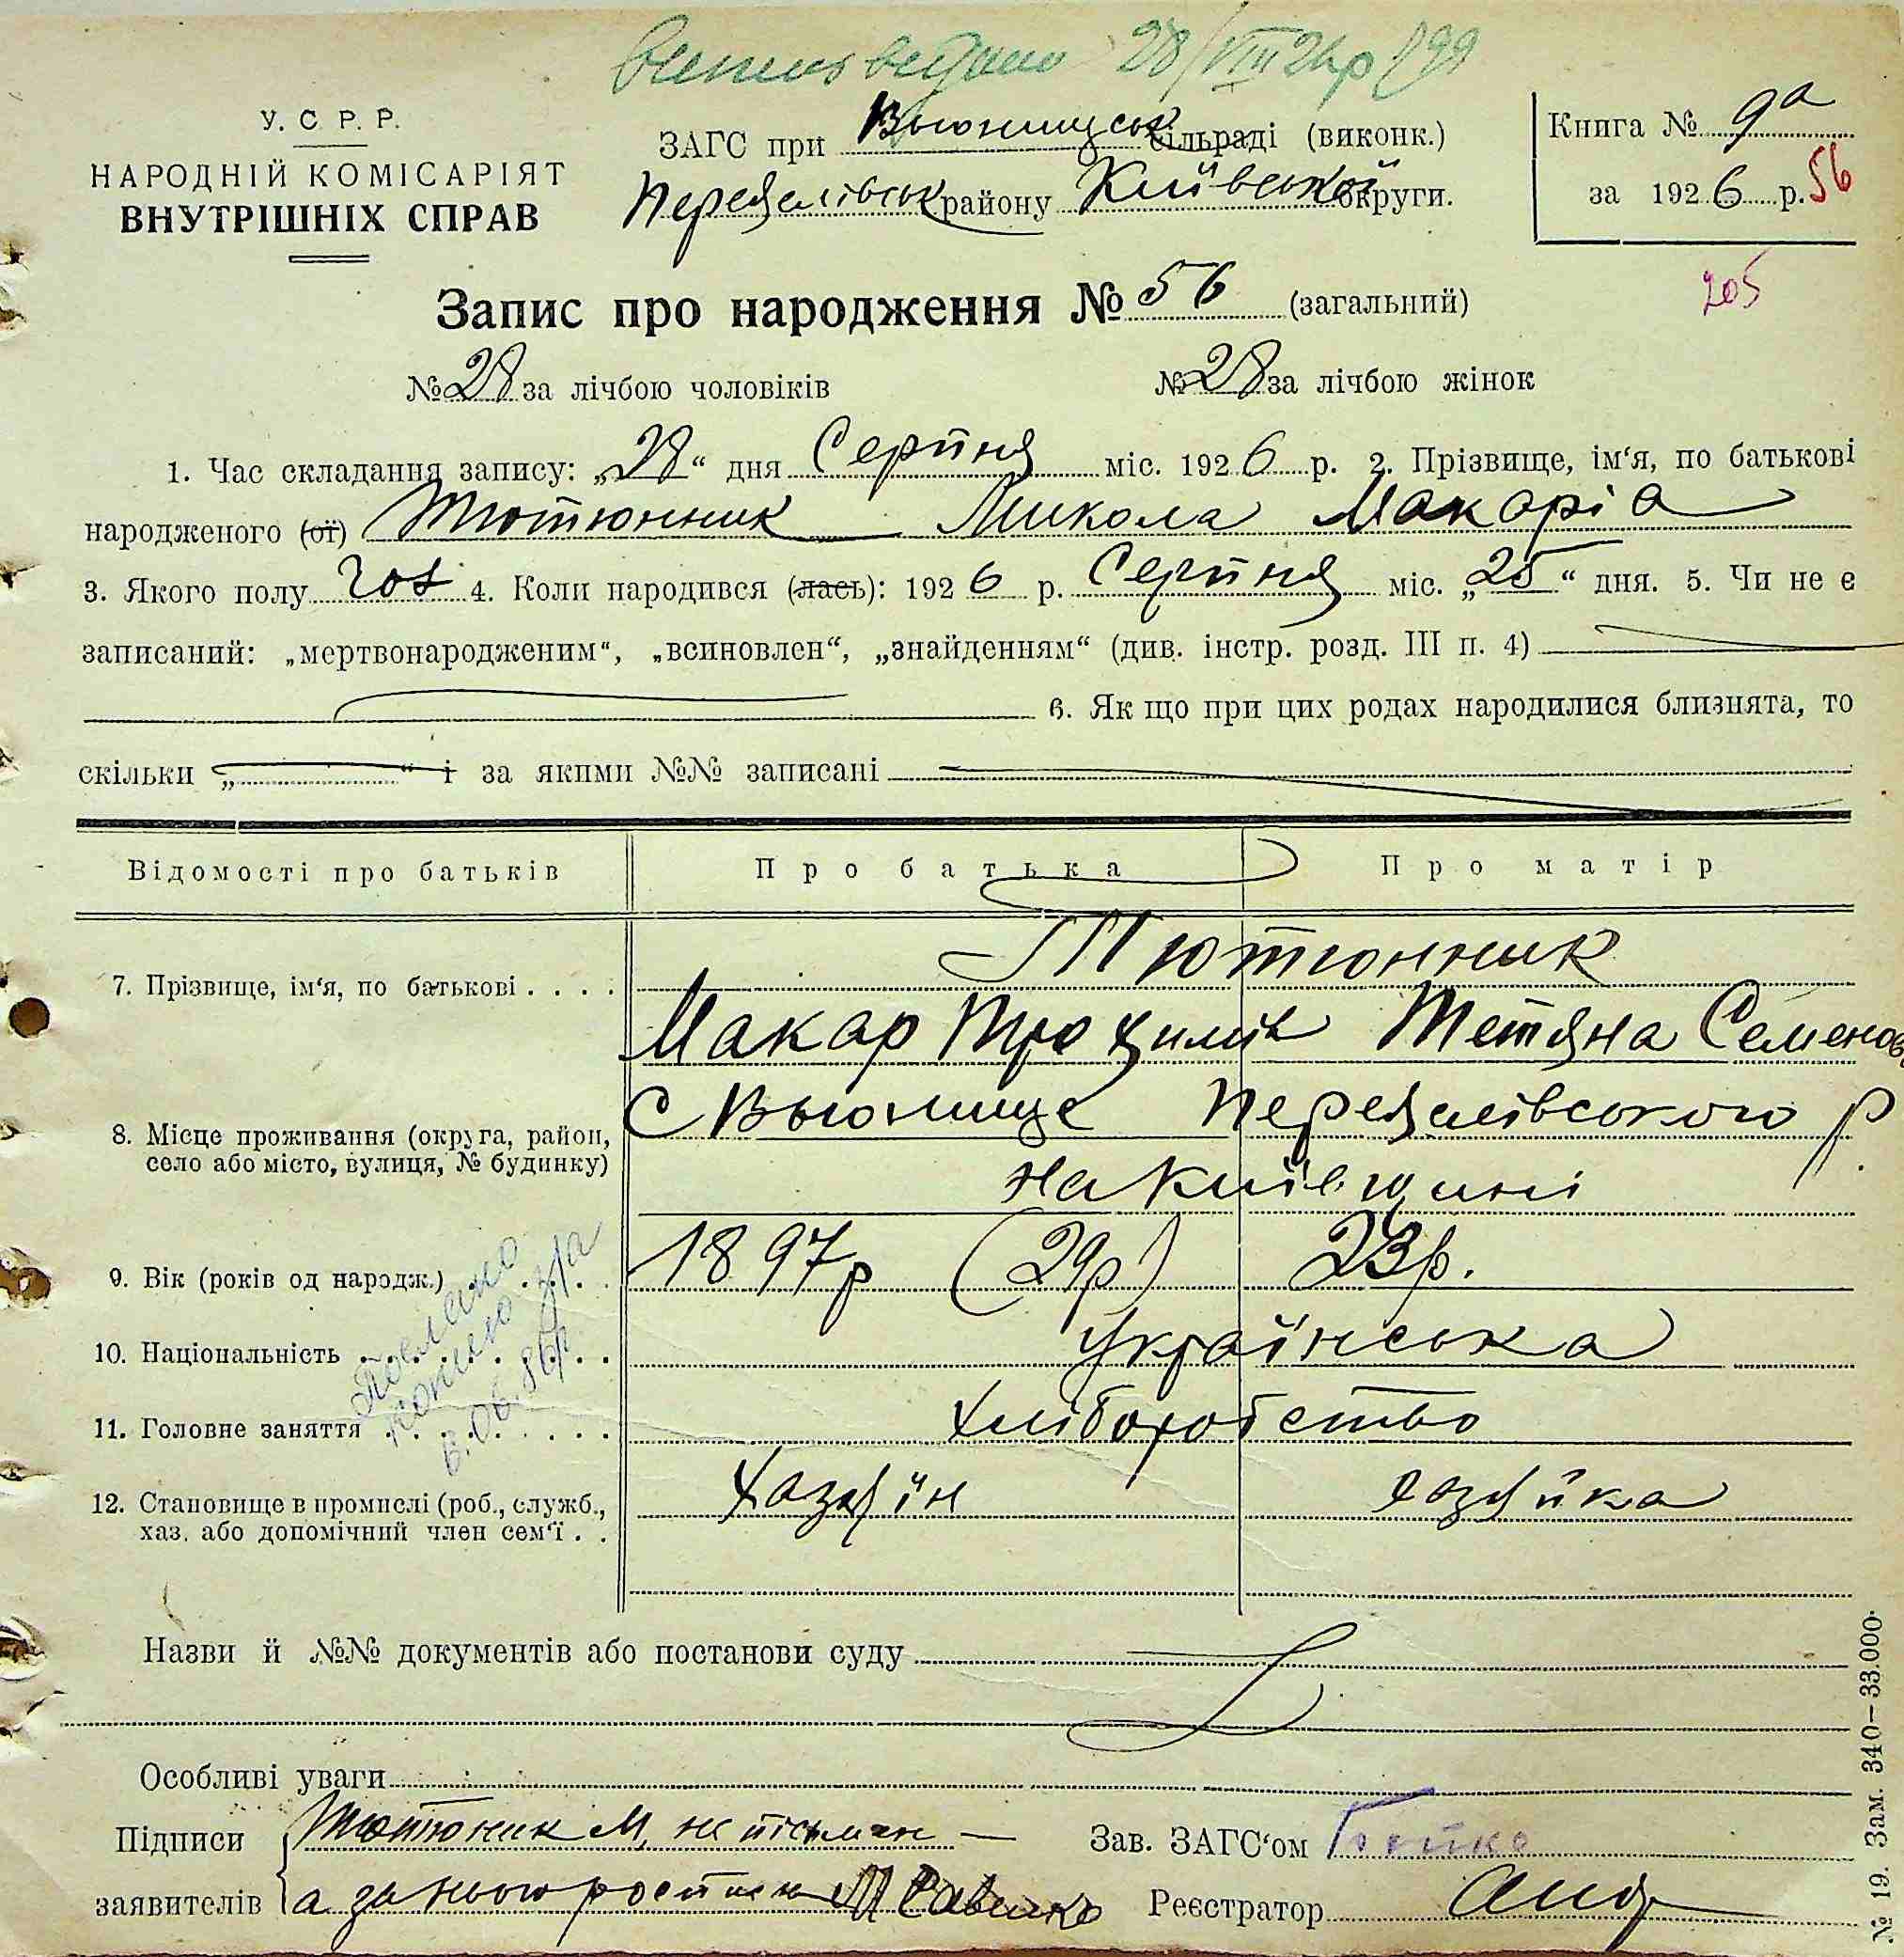 видано 28/VIII 26р
У. С Р. Р.
НАРОДНІЙ КОМІСАРІЯТ
ВНУТРІШНІХ СПРАВ
ЗАГС при Вьюнищськ сільраді (виконк.)
Переяслівськ району Київської округи.
Книга № 9а
за 1926 р. 56
205
Запис про народження № 56 (загальний)
№ 28 за лічбою чоловіків № 28 за лічбою жінок
1. Час складання запису: „28“ дня Серпня міс. 1926 р. 2. Прізвище, ім‘я, по батькові
народженого (ої) Тютюнник Микола Макаріа
3. Якого полу чол 4. Коли народився (лась): 1926 р. Серпня міс. „25“ дня. 5. Чи не є
записаний: „мертвонародженим“, „всиновлен“, „знайденням“ (див. інстр. розд. III п. 4)
6. Як що при цих родах народилися близнята, то
скільки „ “ і за якими №№ записані
Відомості про батьків Про батька Про матір
Тютюнник
7. Прізвище, ім‘я, по батькові . . . .
Макар Трохимів Тетяна Семенов
С Вьюнище Переяслівського р
8. Місце проживання (округа, район,
село або місто, вулиця, № будинку)
на Київщині
9. Вік (років од народж.) . . . . 1897р (29р) 23р.
10. Національність . . . . . . . . Українська
11. Головне заняття . . . . . . . . хліборобство
12. Становище в промислі (роб., служб., хазяїн хазяйка
хаз. або допомічний член сем‘ї . .
Назви й №№ документів або постанови суду
Особливі уваги
Підписи Тютюник М, не пісьмен — Зав. ЗАГС‘ом Бойко
заявителів а за нього росписн М Савенко Реєстратор
№ 19. Зам. 340—33.000.